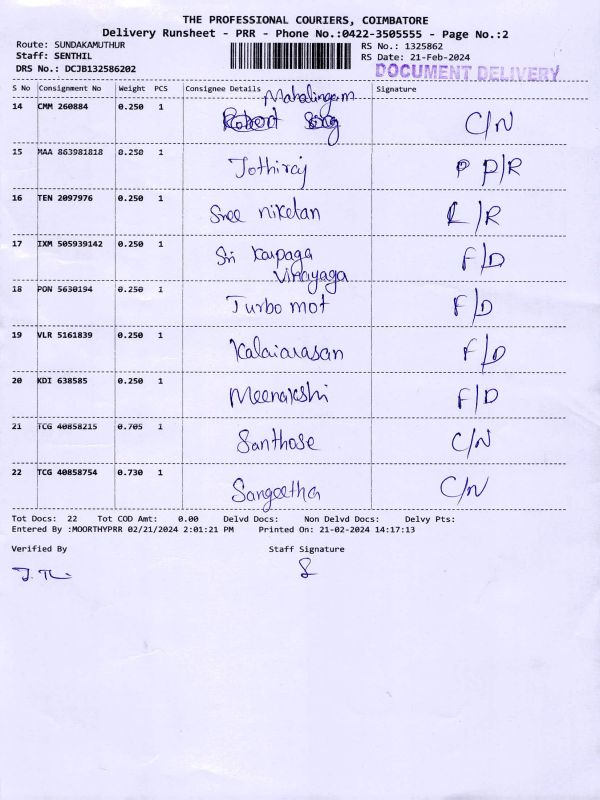 THE PROFESSIONAL COURIERS, COIMBATORE
Delivery Runsheet - PRR - Phone No.:0422-3505555 - Page No.:2
Route: SUNDAKAMUTHUR
RS No.: 1325862
Staff: SENTHIL
RS Date: 21-Feb-2024
DRS No.: DCJB132586202
DOCUMENT DELIVERY
S No Consignment No Weight PCS Consignee Details Signature
Mahalingam
14 CMM 260884 0.250 1 C/N
15 MAA 863981818 0.250 1 Jothiraj P P/R
16 TEN 2097976 0.250 1 Sree niketan L/R
17 IXM 505939142 0.250 1 Sri Karpaga F/D
Vinayaga
18 PON 5630194 0.250 1 Turbo mot F/D
19 VLR 5161839 0.250 1 Kalaiarasan F/D
20 KDI 638585 0.250 1 Meenakshi F/D
21 TCG 40858215 0.705 1 Santhose C/N
22 TCG 40858754 0.730 1 Sangeetha C/N
Tot Docs: 22 Tot COD Amt: 0.00 Delvd Docs: Non Delvd Docs: Delvy Pts:
Entered By :MOORTHYPRR 02/21/2024 2:01:21 PM Printed On: 21-02-2024 14:17:13
Verified By Staff Signature